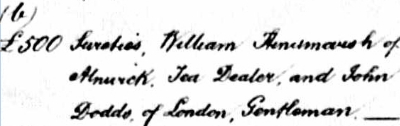 (b)
£500 Sureties, William Hindmarsh of
Alnwick, Tea Dealer, and John
Dodds, of London, Gentleman.